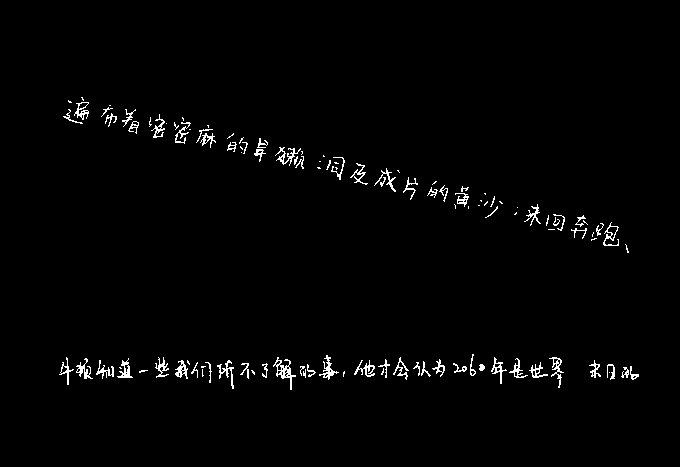 遍布着密密麻的旱獭洞及成片的黄沙;来回奔跑、
牛顿知道一些我们所不了解的事,他才会认为2060年是世界 末日的